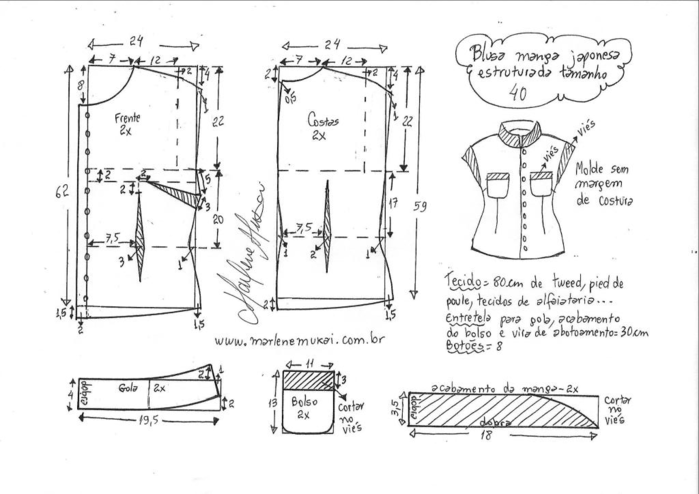 24
7
12
2
4
8
1
Frente
2x
22
62
2
2
2
5
3
20
7,5
3
1
1,5
2
1,5
24
7
12
2
2
4
0,5
1
Costas
2x
22
17
59
7,5
1
3
1
2
1,5
Marlene Mukai
www.marlenemukai.com.br
Blusa manga japonesa
estruturada tamanho
40
viés
viés
Molde sem
margem
de costura
Tecido = 80cm de tweed, pied de
poule, tecidos de alfaiataria...
Entretela para gola, acabamento
do bolso e vira de abotoamento = 30cm
Botões = 8
4
dobra
Gola
2x
2
1
2
19,5
11
13
3
Bolso
2x
Cortar
no
viés
acabamento da manga - 2x
3,5
dobra
dobra
18
Cortar
no
viés